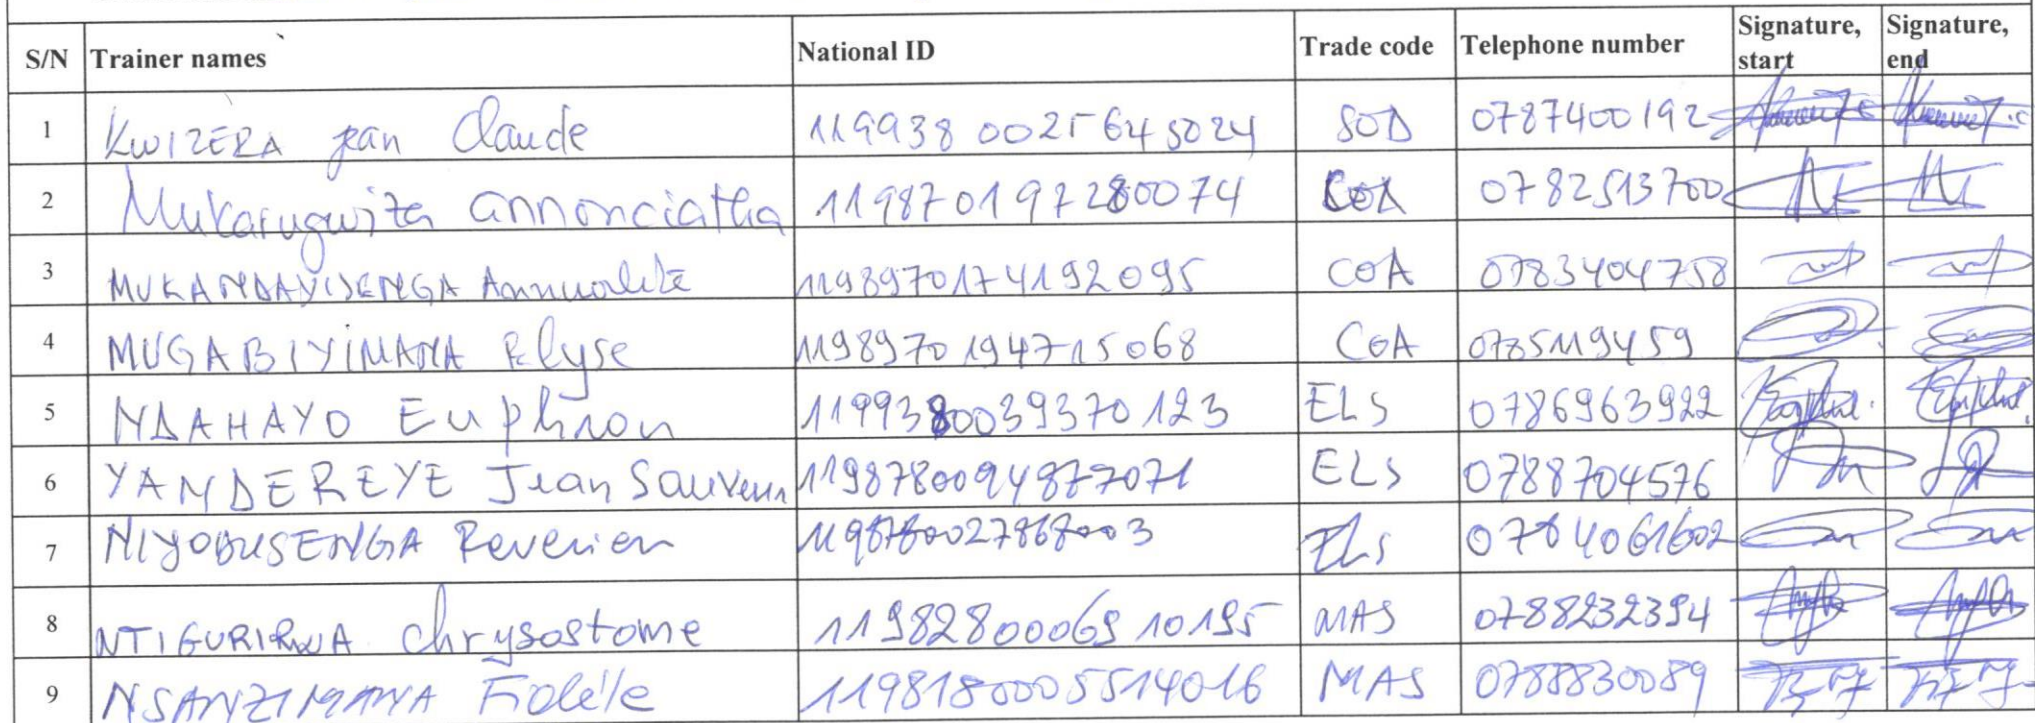 S/N Trainer names National ID Trade code Telephone number Signature, start Signature, end
1 KWIZERA jean Claude 119938 0025645024 SOD 0787400192
2 Mukarugwiza annonciatha 1198701972280074 COA 0782513700
3 MUKANDAYISENGA Annualite 1198970174192095 COA 0783404758
4 MUGABIYIMANA Elyse 1198970194715068 COA 0785119459
5 NDAHAYO Euphron 1199380039370123 ELS 0786963922
6 YANDEREYE Jean Sauveur 1198780094877071 ELS 0788704576
7 NIYOBUSENGA Reverien 1198780027868003 ELS 0784061602
8 NTIGURIRWA chrysostome 1198280006910195 MAS 0788232394
9 NSANZIMANA Fidèle 1198180005514016 MAS 0788830089